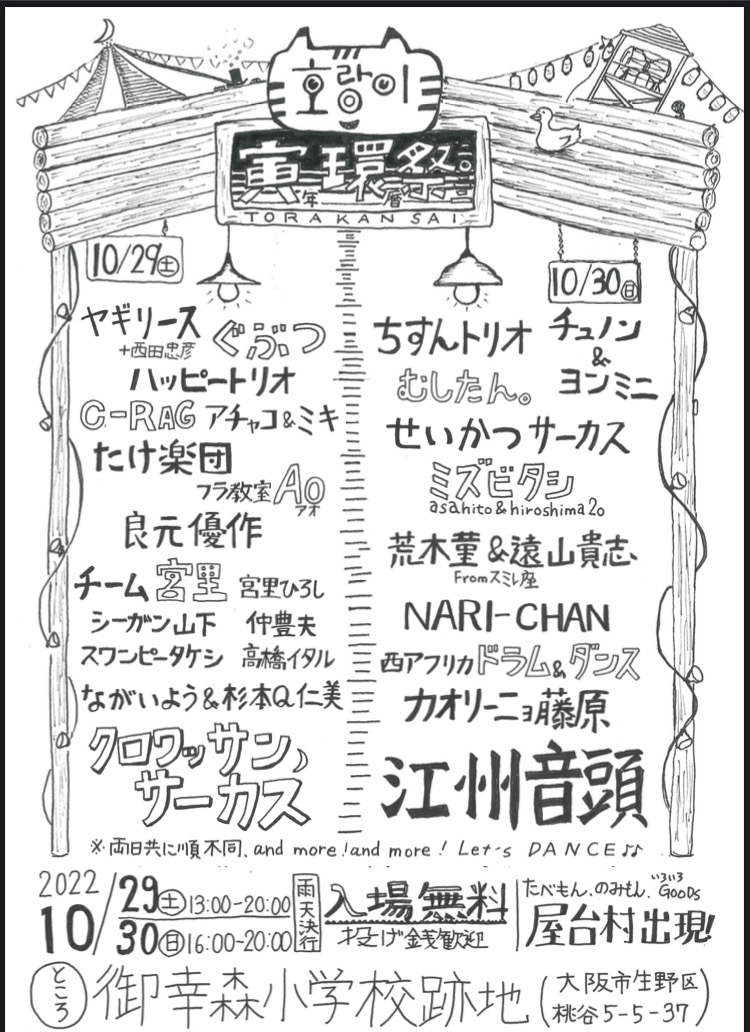 호라이
寅年環暦祭二〇二二
TORAKANSAI
10/29土
ヤギリース
+西田忠彦
ぐぶつ
ハッピートリオ
C-RAG アチャコ&ミキ
たけ楽団
フラ教室 AO
アオ
良元優作
チーム宮里 宮里ひろし
シーガン山下 仲豊夫
スワンピータケシ 高橋イタル
ながいよう&杉本Q仁美
クロワッサン
サーカス
10/30日
ちすんトリオ
チュノン
&
ヨンミニ
むしたん。
せいかつサーカス
ミズビタシ
asahito & hiroshima2o
荒木菫&遠山貴志
Fromスミレ座
NARI-CHAN
西アフリカドラム&ダンス
カオリーニョ藤原
江州音頭
※両日共に順不同、and more! and more! Let's DANCE♫
2022
10/29土 13:00-20:00
30日 16:00-20:00
雨天決行
入場無料
投げ銭歓迎
たべもん、のみもん、いろいろGOODs
屋台村出現!
ところ
御幸森小学校跡地(大阪市生野区
桃谷5-5-37)